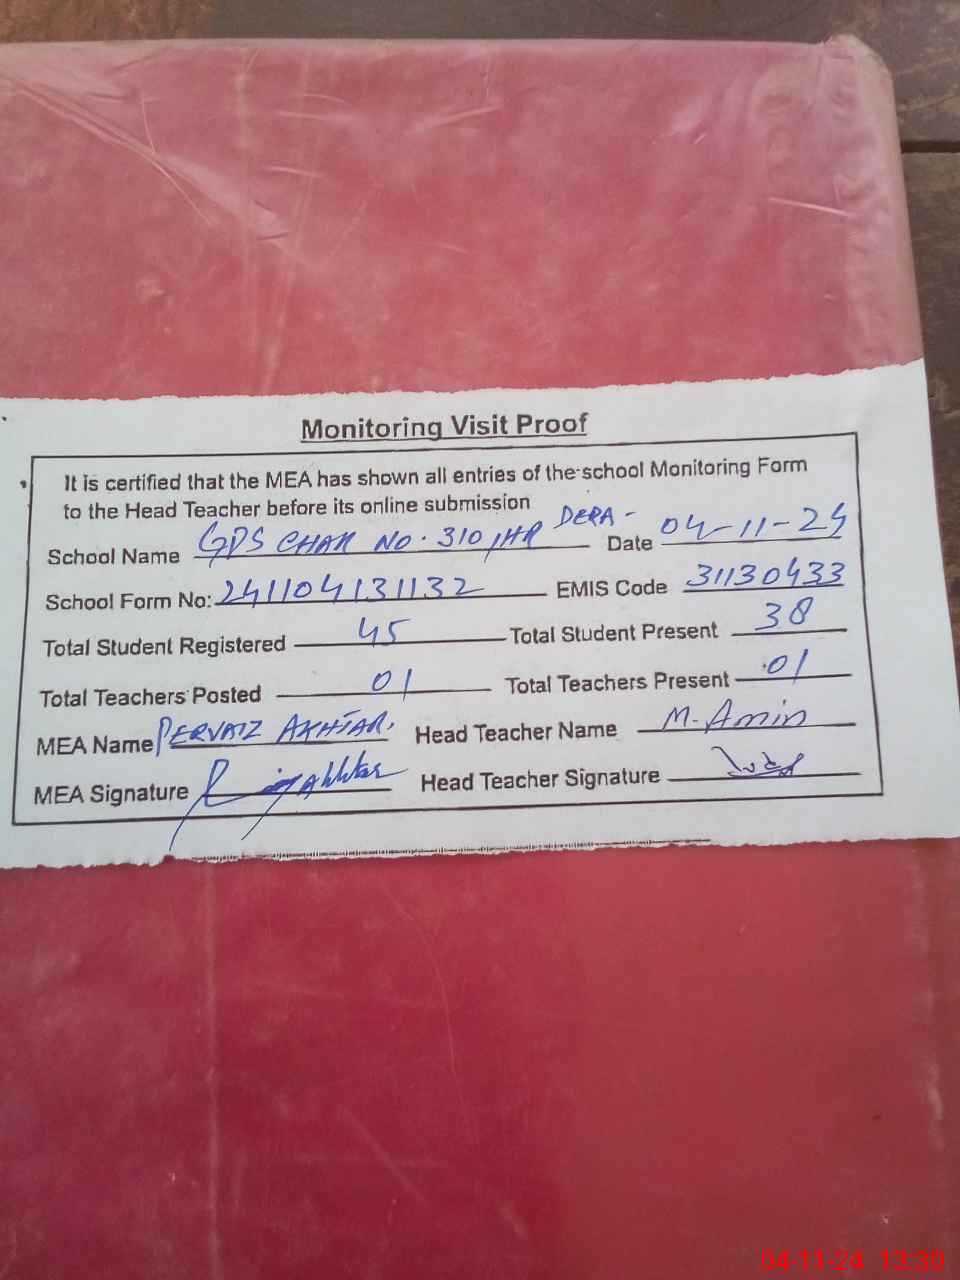 Monitoring Visit Proof
It is certified that the MEA has shown all entries of the school Monitoring Form
to the Head Teacher before its online submission
School Name GPS CHAK NO. 310 /HR DERA - Date 04-11-24
School Form No: 241104131132 EMIS Code 31130433
Total Student Registered 45 Total Student Present 38
Total Teachers Posted 01 Total Teachers Present 01
MEA Name PERVAIZ AKHTAR. Head Teacher Name M. Amin
MEA Signature Akhtar Head Teacher Signature
04-11-24 13:30